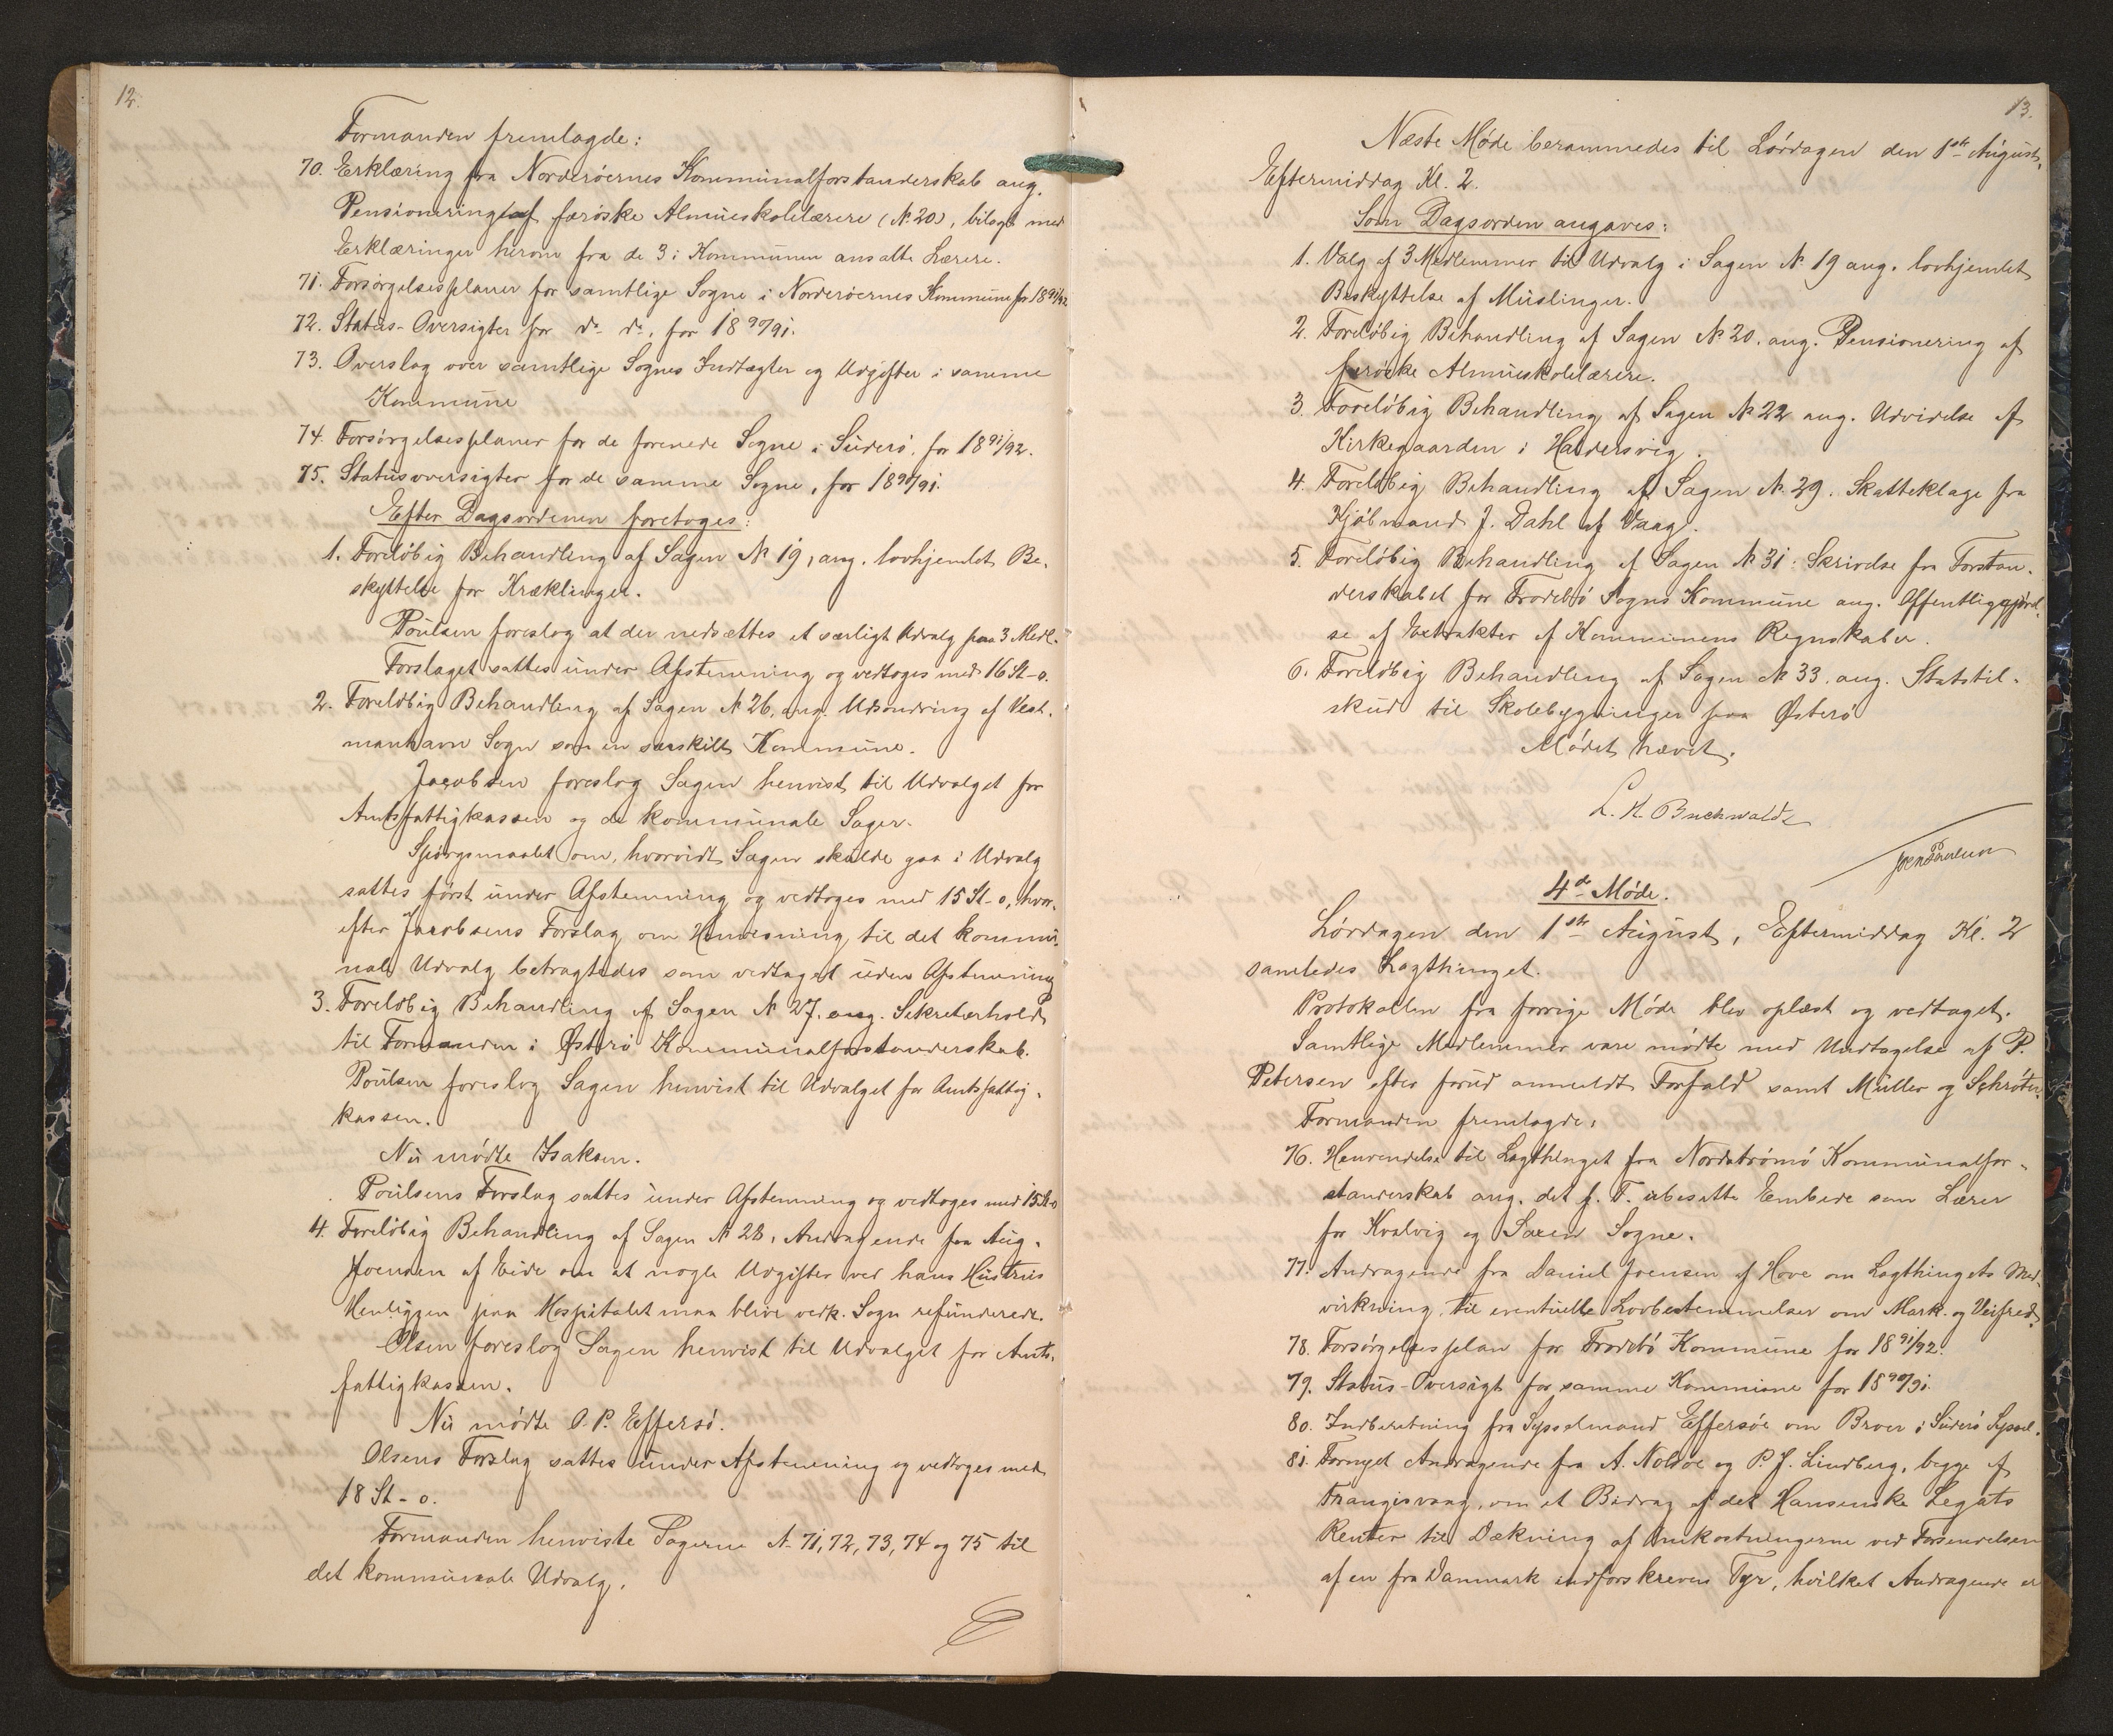 12.
Formanden fremlagde:
70. Erklæring fra Norderøernes Kommunalforstanderskab ang.
Pensionering af færøske Almueskolelærere (№ 20), bilagt med
Erklæringer herom fra de 3 i Kommunen ansatte Lærere.
71. Forsørgelsesplaner for samtlige Sogne i Norderøernes Kommune for 1891/92
72. Status-Oversigter for do do, for 1890/91.
73. Overslag over samtlige Sognes Indtægter og Udgifter i samme
Kommune
74. Forsørgelsesplaner for de forenede Sogne i Suderø, for 1891/92.
75. Statusoversigter for de samme Sogne, for 1890/91.
Efter Dagsordenen foretoges:
1. Foreløbig Behandling af Sagen № 19, ang. lovhjemlet Be-
skyttelse for Kræklinger.
Poulsen foreslog at der nedsættes et særligt Udvalg paa 3 Medl.
Forslaget sattes under Afstemning og vedtoges med 16 St-o.
2. Foreløbig Behandling af Sagen № 26, ang. Udsondring af Vest-
manhavn Sogn som en særskilt Kommune.
Jacobsen foreslog Sagen henvist til Udvalget for
Amtsfattigkassen og de kommunale Sager.
Spørgsmaalet om, hvorvidt Sagen skulde gaa i Udvalg
sattes først under Afstemning og vedtoges med 15 St-o, hvor-
efter Jacobsens Forslag om Henvisning til det kommu-
nale Udvalg betragtedes som vedtaget uden Afstemning
3. Foreløbig Behandling af Sagen № 27. ang. Sekretærhold
til Formanden i Østerø Kommunalforstanderskab.
Poulsen foreslog Sagen henvist til Udvalget for Amtsfattig-
kassen.
Nu mødte Isaksen.
Poulsens Forslag sattes under Afstemning og vedtoges med 15 St-o
4. Foreløbig Behandling af Sagen № 28, Andragende fra Aug.
Joensen af Eide om at nogle Udgifter ved hans Hustrus
Henliggen paa Hospitalet maa blive vedk. Sogn refunderede.
Olsen foreslog Sagen henvist til Udvalget for Amts-
fattigkassen.
Nu mødte O. P. Effersø.
Olsens Forslag sattes under Afstemning og vedtoges med
18 St-o.
Formanden henviste Sagerne № 71, 72, 73, 74 og 75 til
det kommunale Udvalg.
13.
Næste Møde berammedes til Lørdagen den 1ste August,
Eftermiddag Kl. 2.
Som Dagsorden angaves:
1. Valg af 3 Medlemmer til Udvalg i Sagen № 19 ang. lovhjemlet
Beskyttelse af Muslinger.
2. Foreløbig Behandling af Sagen № 20. ang. Pensionering af
færøske Almueskolelærere.
3. Foreløbig Behandling af Sagen № 22 ang. Udvidelse af
Kirkegaarden i Haldersvig.
4. Foreløbig Behandling af Sagen № 29. Skatteklage fra
Kjøbmand J. Dahl af Vaag.
5. Foreløbig Behandling af Sagen № 31: Skrivelse fra Forstan-
derskabet for Frodebø Sogns Kommune ang. Offentliggjørel-
se af Extrakter af Kommunens Regnskaber.
6. Foreløbig Behandling af Sagen № 33. ang. Statstil-
skud til Skolebygninger paa Østerø
Mødet hævet.
L. H. Buchwaldt
Joen Poulsen
4de Møde.
Lørdagen den 1ste August, Eftermiddag Kl. 2
samledes Lagthinget.
Protokollen fra forrige Møde blev oplæst og vedtaget.
Samtlige Medlemmer vare mødte med Undtagelse af P.
Petersen efter forud anmeldt Forfald samt Müller og Schrøter.
Formanden fremlagde:
76. Henvendelse til Lagthinget fra Nordstrømø Kommunalfor-
standerskab ang. det f. T. ubesatte Embede som Lærer
for Kvalvig og Saxen Sogne.
77. Andragende fra Daniel Joensen af Hove om Lagthingets Med-
virkning til eventuelle Lovbestemmelser om Mark- og Veifred.
78. Forsørgelsesplan for Frodebø Kommune for 1891/92.
79. Status-Oversigt for samme Kommune for 1890/91.
80. Indberetning fra Sysselmand Effersøe om Broer i Suderø Syssel.
81. Fornyet Andragende fra A. Nolsøe og P. J. Lindberg, begge af
Trangisvaag, om et Bidrag af det Hansenske Legats
Renter til Dækning af Omkostningerne ved Forsendelsen
af en fra Danmark indforskreven Tyr, hvilket Andragende er